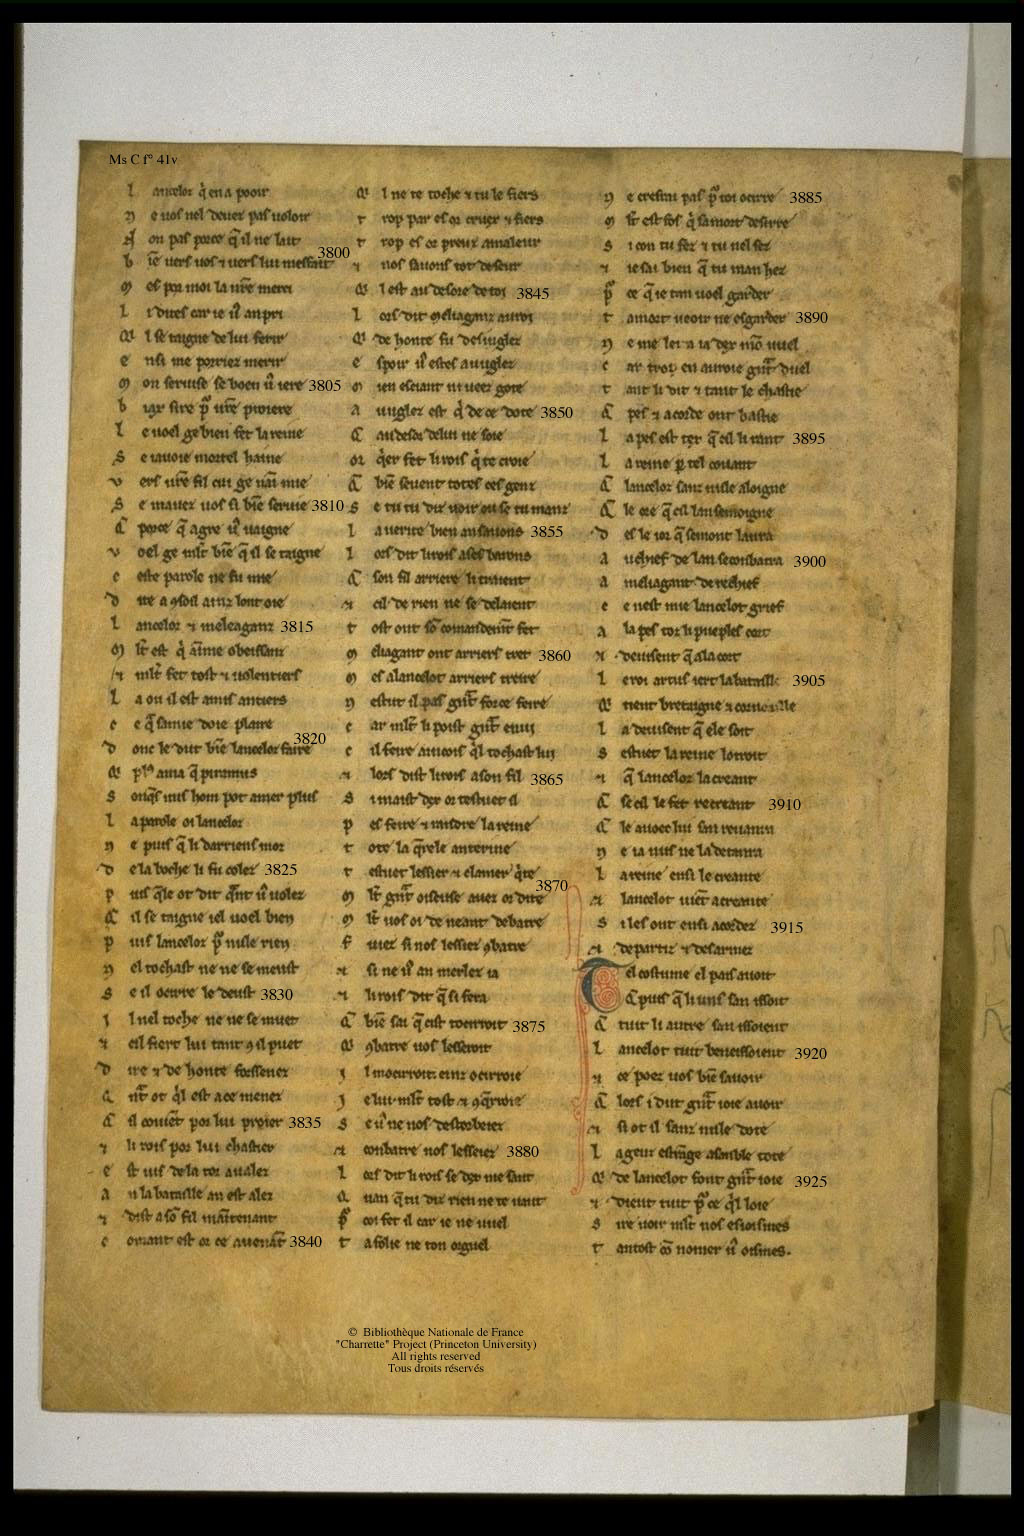 Ms C fº 41v
L ancelot q̇ en a pooir
N e uos nel deuez pas uoloir
N on pas porce q̄ il ne lait
b ı̄e uers uos ⁊ uers lui messait 3800
M es por moi la ur̄e merci
L i dites car ie u̾ an pri
Q̾ l se taigne de lui ferir
E nsi me porriez merir
M on seruise se boen u̾ iere 3805
b iax sire p̄ ur̄e proiere
L e uoel ge bien fet la reine
S e iauoie mortel haine
V ers ur̄e fil cui ge nai mie
S e mauez uos si bı̄e seruie 3810
Q̃ porce q̄ a gre u̾ uaigne
V oel ge ml̄t bı̄e q̄ il se taigne
C este parole ne fu mie
D ite a ꝯsoil ainz lont oie
L ancelot ⁊ meleaganz 3815
M l̄t est q̇ aı̄me obeissanz
⁊ ml̄t fet tost ⁊ uolentiers
L a ou il est amis antiers
C e q̄ samie doie plaire
D onc le dut bı̄e lancelot faire 3820
Q̾ pl̾s ama q̄ piramus
S onq̄s nus hom pot amer plus
L a parole oi lancelot
N e puis q̄ li darriens moz
D e la boche li fu colez 3825
P uis q̄le ot dit q̃nt u̾ uolez
Q̃ il se taigne iel uoel bien
P uis lancelot p̄ nule rien
N el tochast ne ne se meust
S e il ocirre le deust 3830
I l nel toche ne ne se muet
⁊ cil fiert lui tant ꝯ il puet
D ire ⁊ de honte forssenez
Q̃ nt̃ ot q̇l est a ce menez
Q̃ il couiēt por lui proier 3835
⁊ li rois por lui chastier
E st ius de la tor aualez
A n la bataille an est alez
⁊ dist a sō fil maı̄tenant
C omant est or ce auenāt 3840
Q̾ l ne te toche ⁊ tu le fiers
T rop par es or cruex ⁊ fiers
T rop es or preux a mal eur
⁊ nos sauons tot de seur
Q̾ l est au desore de toi 3845
L ors dit meliaganz au roi
Q̾ de honte fu desiuglez
E spoir u̾ estes auuglez
M ien esciant ni ueez gote
A uuglez est q̇ de ce dote 3850
Q̃ au desor de lui ne soie
Or q̇er fet li rois q̇ te croie
Q̃ bı̄e seuent totes ces genz
S e tu tu diz uoir ou se tu manz
L a uerite bien an sauons 3855
L ors dit li rois a ses barons
Q̃ son fil arriere li traient
⁊ cil de rien ne se delaient
T ost ont sō comandemāt fet
M eliagant ont arriers tret 3860
M es a lancelot arriers treire
N estut il pas gn̄t force feire
C ar ml̄t li poist gn̄t enui
C il feire aincois q̇l tochast lui
⁊ lors dist li rois a son fil 3865
S i maist dex or testuet il
P es feire ⁊ randre la reine
T ote la q̄rele anterine
T estuet lessier ⁊ clamer q̇te
M l̄t gn̄t oiseuse auez or dite 3870
M l̄t uos oi de neant debatre
F uiez si nos lessiez ꝯbatre
⁊ si ne u̾ an merlez ia
⁊ li rois dit q̄ si fera
Q̃ bı̄e sai q̄ cist tocirroit 3875
Q̾ ꝯbatre uos lesseroit
I l mocirroit einz ocirroie
J e lui ml̄t tost ⁊ ꝯq̄rroie
S e u̾ ne nos destorbeiez
⁊ conbatre nos lesseiez 3880
L ors dit li rois se dex me saut
Q̃ uan q̄ tu diz rien ne te uaut
P̄ coi fet il car ie ne uuel
T a folie ne ton orguel
N e crestrai pas p̄ toi ocirre 3885
M l̄t est fos q̇ sa mort desirre
S i con tu fez ⁊ tu nel sez
⁊ ie sai bien q̄ tu man hez
P̄ ce q̄ ie tan uoel garder
T a mort ueoir ne esgarder 3890
N e me lera ia dex mō uuel
C ar trop en auroie gn̄t duel
T ant li dit ⁊ tant le chastie
Q̃ pes ⁊ acorde ont bastie
L a pes est tex q̄ cil li rant 3895
L a reine p̱ tel couant
Q̃ lancelot sanz nule aloigne
Q̃ le ore q̄ cil lan semoigne
D es le ior q̄ semont laura
A u chief de lan se conbatra 3900
A meliagant de rechief
C e nest mie lancelot grief
A la pes tot li pueples cort
⁊ deuisent q̄ a la cort
L e roi artus iert la bataille 3905
Q̾ tient bretaigne ⁊ cornouaille
L a deuisent q̄ ele soit
S estuet la reine lotroit
⁊ q̄ lancelot la creant
Q̃ se cil le fet recreant 3910
Q̃ le auoec lui san reuanra
N e ia nus ne la detanra
L a reine ensi le creante
⁊ lancelot uiēt a creante
S i les ont ensi acordez 3915
⁊ departiz ⁊ desarmez
Tel costume el pais auoit
Q̃ puis q̄ li uns san issoit
Q̃ tuit li autre san issoient
L ancelot tuit beneissoient 3920
⁊ ce poez uos bı̄e sauoir
Q̃ lors i dut gn̄t ioie auoir
⁊ si ot il sanz nule dote
L a genz estrāge asamble tote
Q̾ de lancelot font gn̄t ioie 3925
⁊ dient tuit p̄ ce q̇l loie
S ire uoir ml̄t nos esioismes
T antost cō nomer u̾ oismes.
© Bibliothèque Nationale de France
"Charrette" Project (Princeton University)
All rights reserved
Tous droits réservés